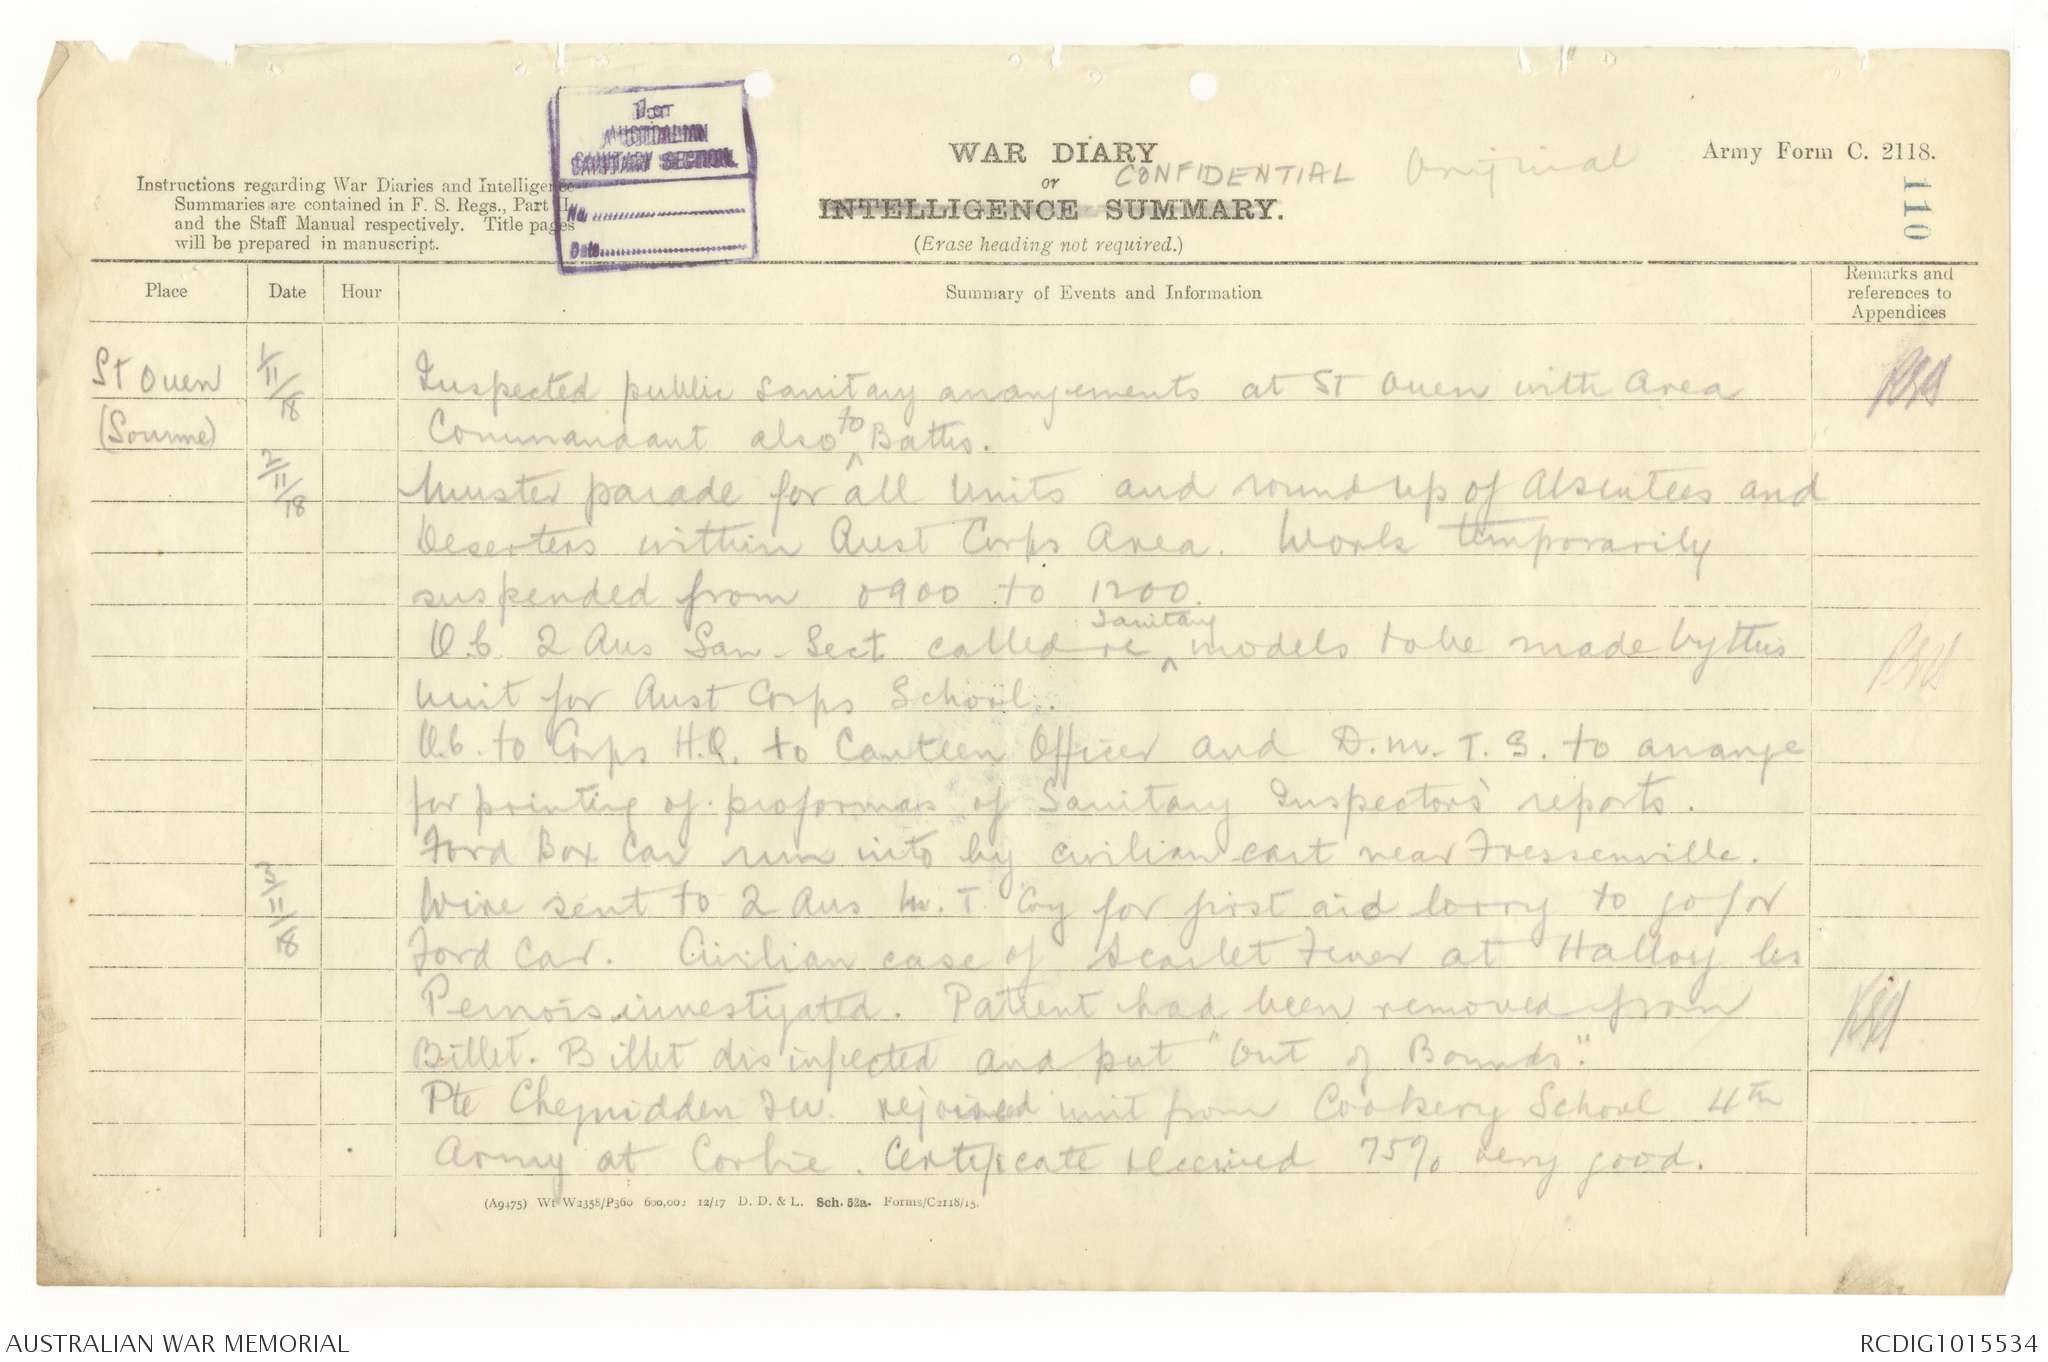 1st
AUSTRALIAN
SANITARY SECTION.
No.
Date
WAR DIARY
or
INTELLIGENCE SUMMARY.
(Erase heading not required.)
CONFIDENTIAL Original
Army Form C. 2118.
110
Instructions regarding War Diaries and Intelligence
Summaries are contained in F. S. Regs., Part II.
and the Staff Manual respectively. Title pages
will be prepared in manuscript.
Place Date Hour Summary of Events and Information Remarks and references to Appendices
St Ouen 1/11/18 Inspected public sanitary arrangements at ST Ouen with Area
(Somme) Commandant also to Baths.
2/11/18 Muster parade for all Units and round up of Absentees and
Deserters within Aust Corps Area. Work temporarily
suspended from 0900 to 1200.
O.C. 2 Aus San. Sect called re sanitary models to be made by this
unit for Aust Corps School.
O.C. to Corps H.Q. to Canteen Officer and D.M.T.S. to arrange
for printing of proformas of Sanitary Inspectors' reports.
Ford Box Car run into by civilian cart near Fressenville.
3/11/18 Wire sent to 2 Aus M.T. Coy for first aid lorry to go for
Ford Car. Civilian case of Scarlet Fever at Halloy les
Pernois investigated. Patient had been removed from
Billet. Billet disinfected and put "Out of Bounds".
Pte Chegwidden F.W. rejoined unit from Cookery School 4th
Army at Corbie. Certificate received 75% very good.
(A9475) Wt W2358/P360 600,000 12/17 D. D. & L. Sch. 52a. Forms/C2118/15.
AUSTRALIAN WAR MEMORIAL RCDIG1015534